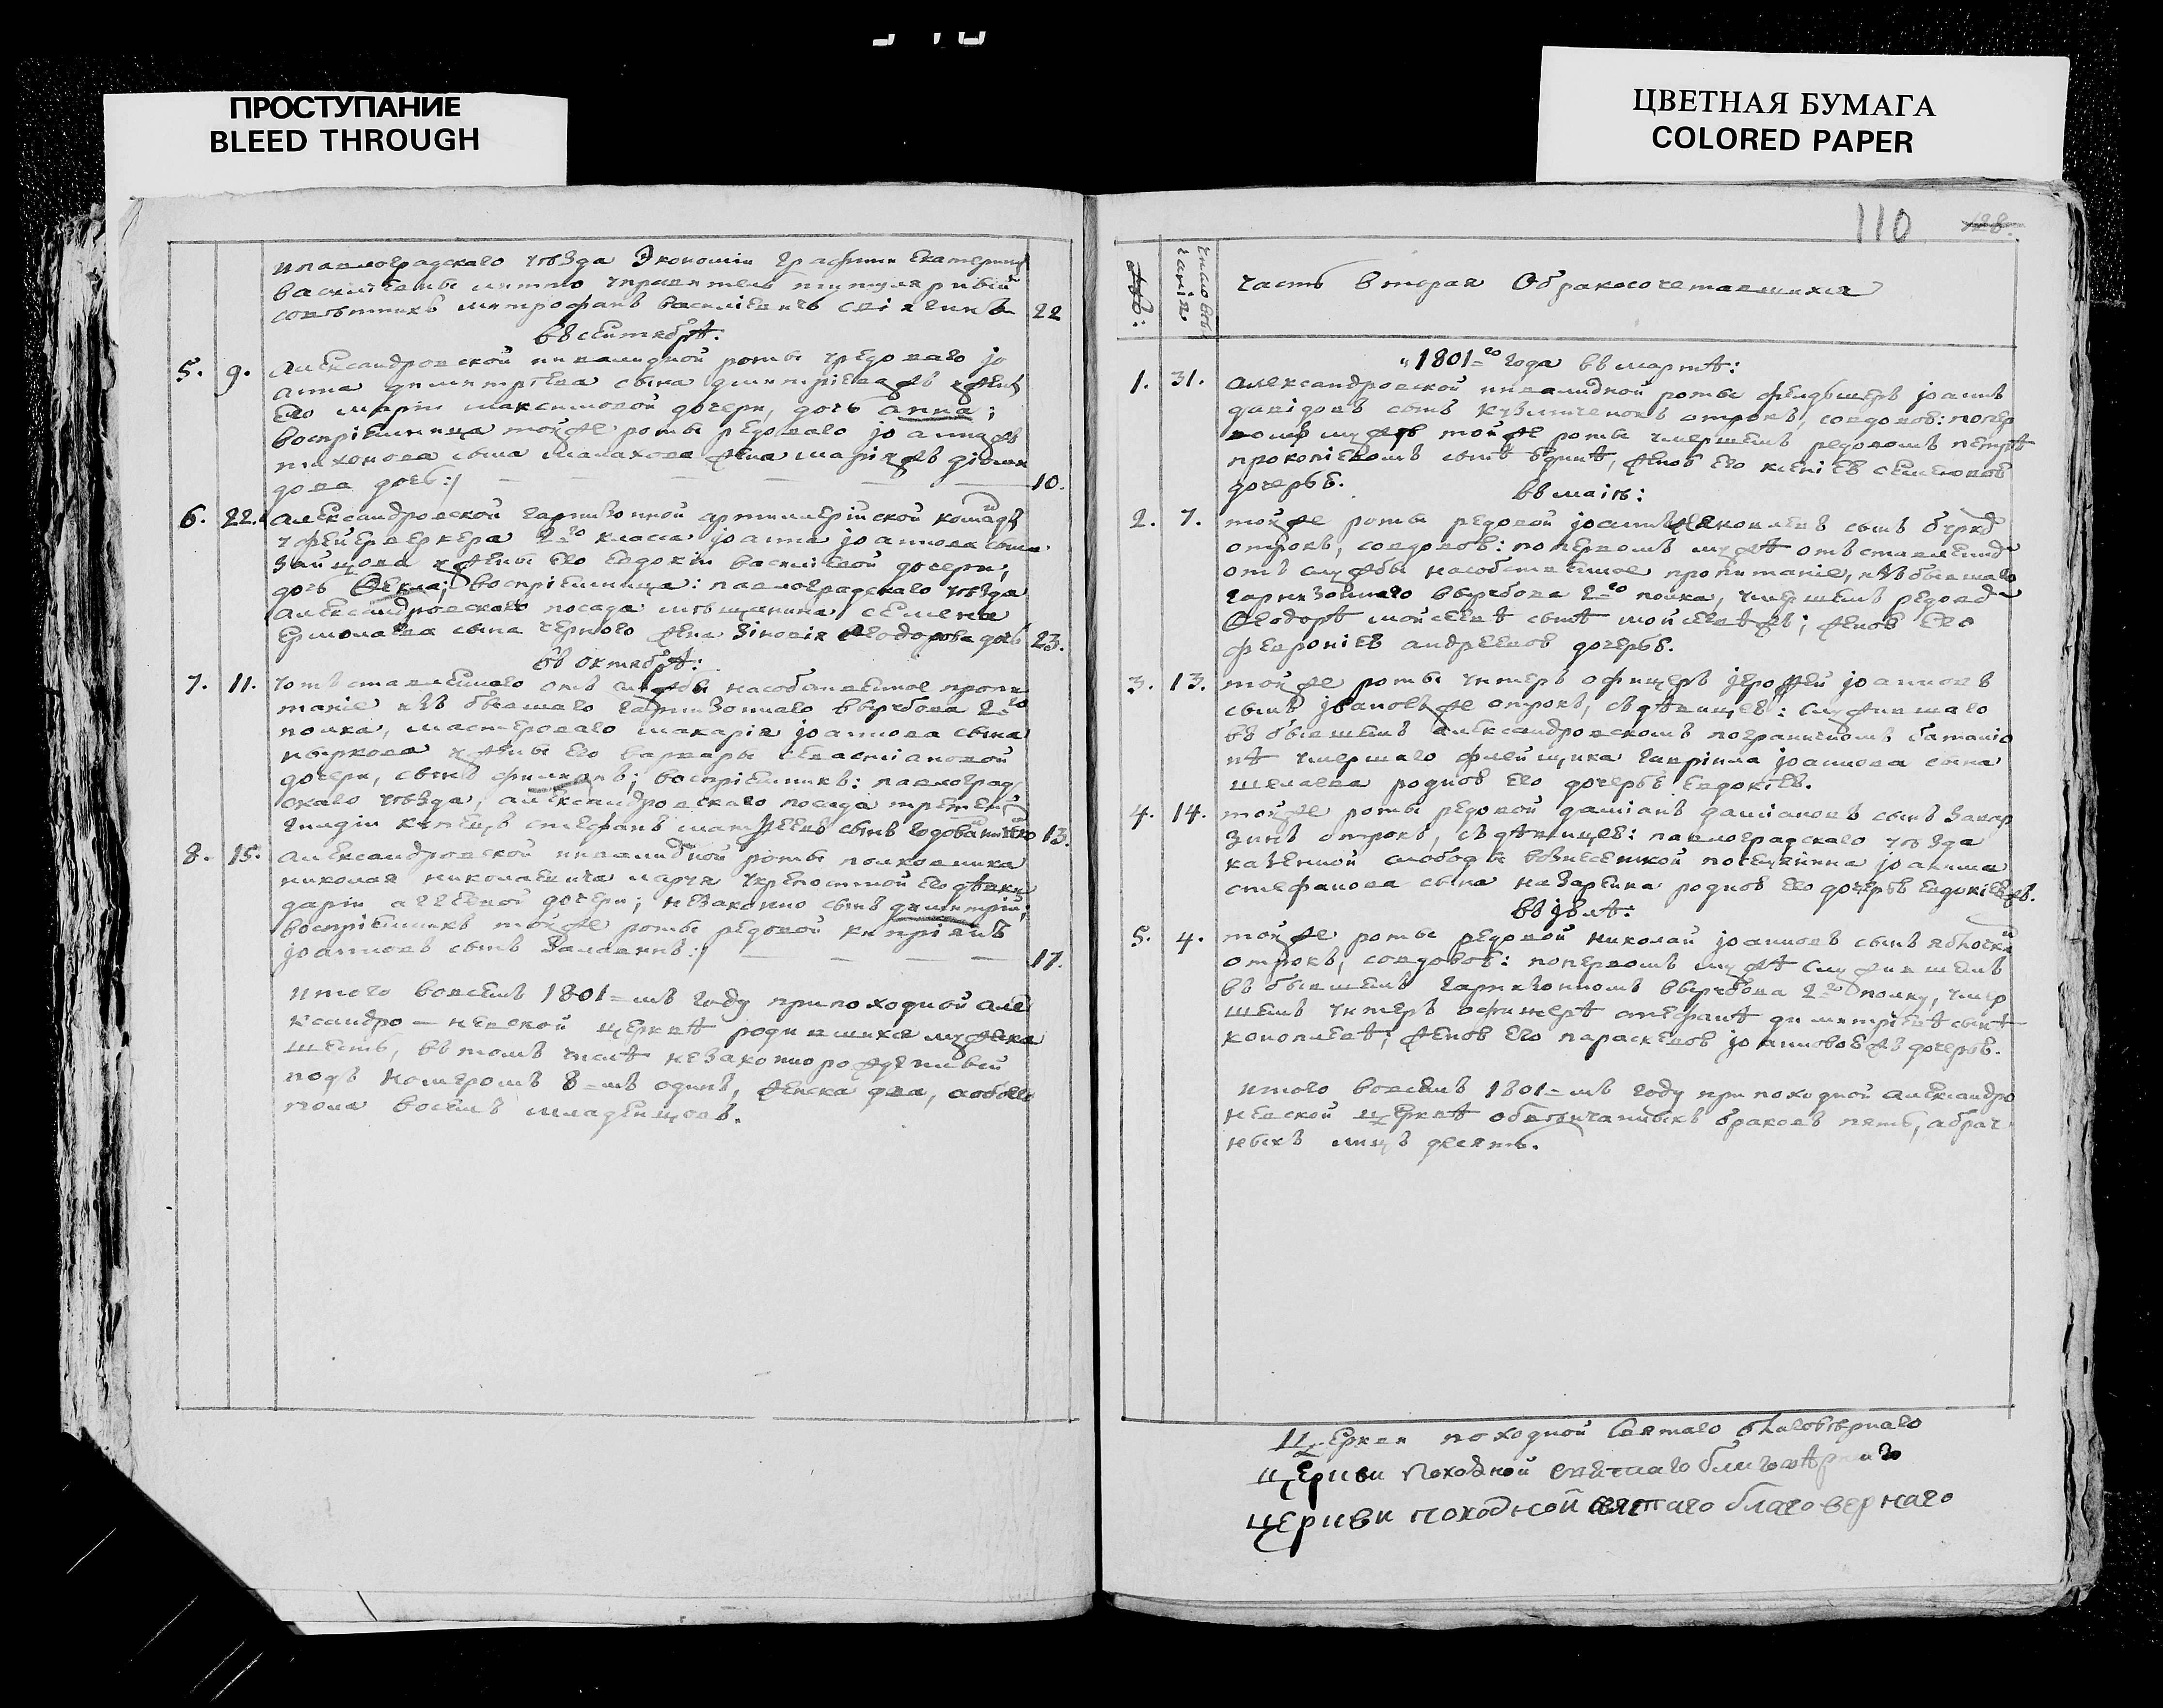 ПРОСТУПАНИЕ
BLEED THROUGH
ЦВЕТНАЯ БУМАГА
COLORED PAPER
110
128.
ипавлоградскаго уѣзда Экономіи Графини Екатерины
василіевны управитель титулярный
совѣтникъ митрофанъ василіевичъ 22
въ сентябрѣ:
5. 9. Александровской инвалидной роты рядоваго іо
анна димитріева сына димитріева и жены
его маріи максимовой дочери, дочь анна;
воспріемница тойже роты рядоваго іоанна
тихонова сына малахова жена марія
дова дочь: 10.
6. 22. Александровской гарнизонной артиллерійской команды
уфейерверкера 2го класса іоанна іоаннова сына
зайцова и жены его евдокіи василіевой дочери,
дочь Ѳекла; воспріемница: павлоградскаго уѣзда
александровскаго посада мѣщанина семена
ермолаева сына чернаго жена зиновія Ѳеодорова дочь 23.
въ октябрѣ:
7. 11. уотъставленнаго отъ службы насобственное пропи
таніе изъ бывшаго гарнизоннаго вырубова 2го
полка, мастероваго макарія іоаннова сына
пыркова и жены его варвары севастіановой
дочери, сынъ филиппъ; воспріемникъ: павлоград
скаго уѣзда, александровскаго посада третей
гилдіи купецъ стефанъ матѳеевъ сынъ 13.
8. 15. Александровской инвалидной роты полковника
николая николаевича укрепостной его дѣвки
даріи дочери; незаконно сынъ димитрій;
воспріемникъ тойже роты рядовой кипріянъ
іоанновъ сынъ 17.
итого вовсемъ 1801=мъ году припоходной але
ксандро-невской церквѣ родившихся мужеска
шесть, въ томъ числѣ незаконнорожденный
подъ номеромъ 8=мъ одинъ, женска два, аобоего
пола восемъ младенцовъ.
часть вторая Обракосочетавшихся
1801=го года въ мартѣ:
1. 31. александровской инвалидной роты фелдшеръ іоаннъ
давидовъ сынъ отрокъ, совдовою: попер
вомъ мужѣ тойже роты умершемъ рядовомъ петрѣ
прокопіевомъ сынѣ женою его ксеніею семеновою
дочерью.
въ маіѣ:
2. 7. тойже роты рядовой іоаннъ яковлевъ сынъ
отрокъ, совдовою: попервомъ мужѣ отъставленномъ
отъ службы насобственное пропитаніе, изъбывшаго
гарнизоннаго вырубова 2го полка, умершемъ рядовомъ
Ѳеодорѣ мойсеевѣ сынѣ мойсеевѣ; женою его
февроніею андреевою дочерью.
3. 13. тойже роты унтеръ офицеръ іероѳей іоанновъ
сынъ отрокъ, сдѣвицею: служившаго
въ бывшемъ александровскомъ пограничномъ баталіо
нѣ умершаго флейщика гавріила іоаннова сына
шелаева родною его дочерью евдокіею.
4. 14. тойже роты рядовой даміанъ даміановъ сынъ
отрокъ, сдѣвицею: павлоградскаго уѣзда
казенной слободы вознесенской поселянина іоанна
стефанова сына назаренка родною его дочерью евдокіею.
въ іюлѣ:
5. 4. тойже роты рядовой николай іоанновъ сынъ
отрокъ, совдовою: попервомъ мужѣ служившемъ
въ бывшемъ гарнизонномъ вырубова 2го полку, умер
шемъ унтеръ офицерѣ стефанѣ димитріевѣ сынѣ
коноплевѣ; женою его параскевою іоанновою дочерью.
итого вовсемъ 1801=мъ году припоходной александро
невской церквѣ обвѣнчанныхъ браковъ пять, абрач
ныхъ лицъ десять.
Церкви походной Святаго благовѣрнаго
Церкви походной святаго благовѣрнаго
Церкви походной святаго благовернаго